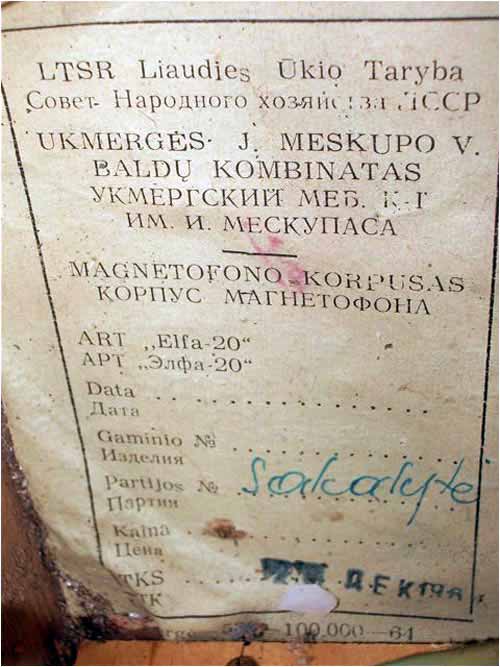 LTSR Liaudies Ūkio Taryba
Совет Народного хозяйства ЛССР
UKMERGĖS J. MESKUPO V.
BALDŲ KOMBINATAS
УКМЕРГСКИЙ МЕБ. К-Т
ИМ. И. МЕСКУПАСА
MAGNETOFONO KORPUSAS
КОРПУС МАГНЕТОФОНА
ART „Elfa-20“
АРТ „Элфа-20“
Data
Дата
Gaminio №
Изделия
Partijos № Sakalytė
Партия
Kaina
Цена
TKS ДЕК 196
ТК
100.000—64